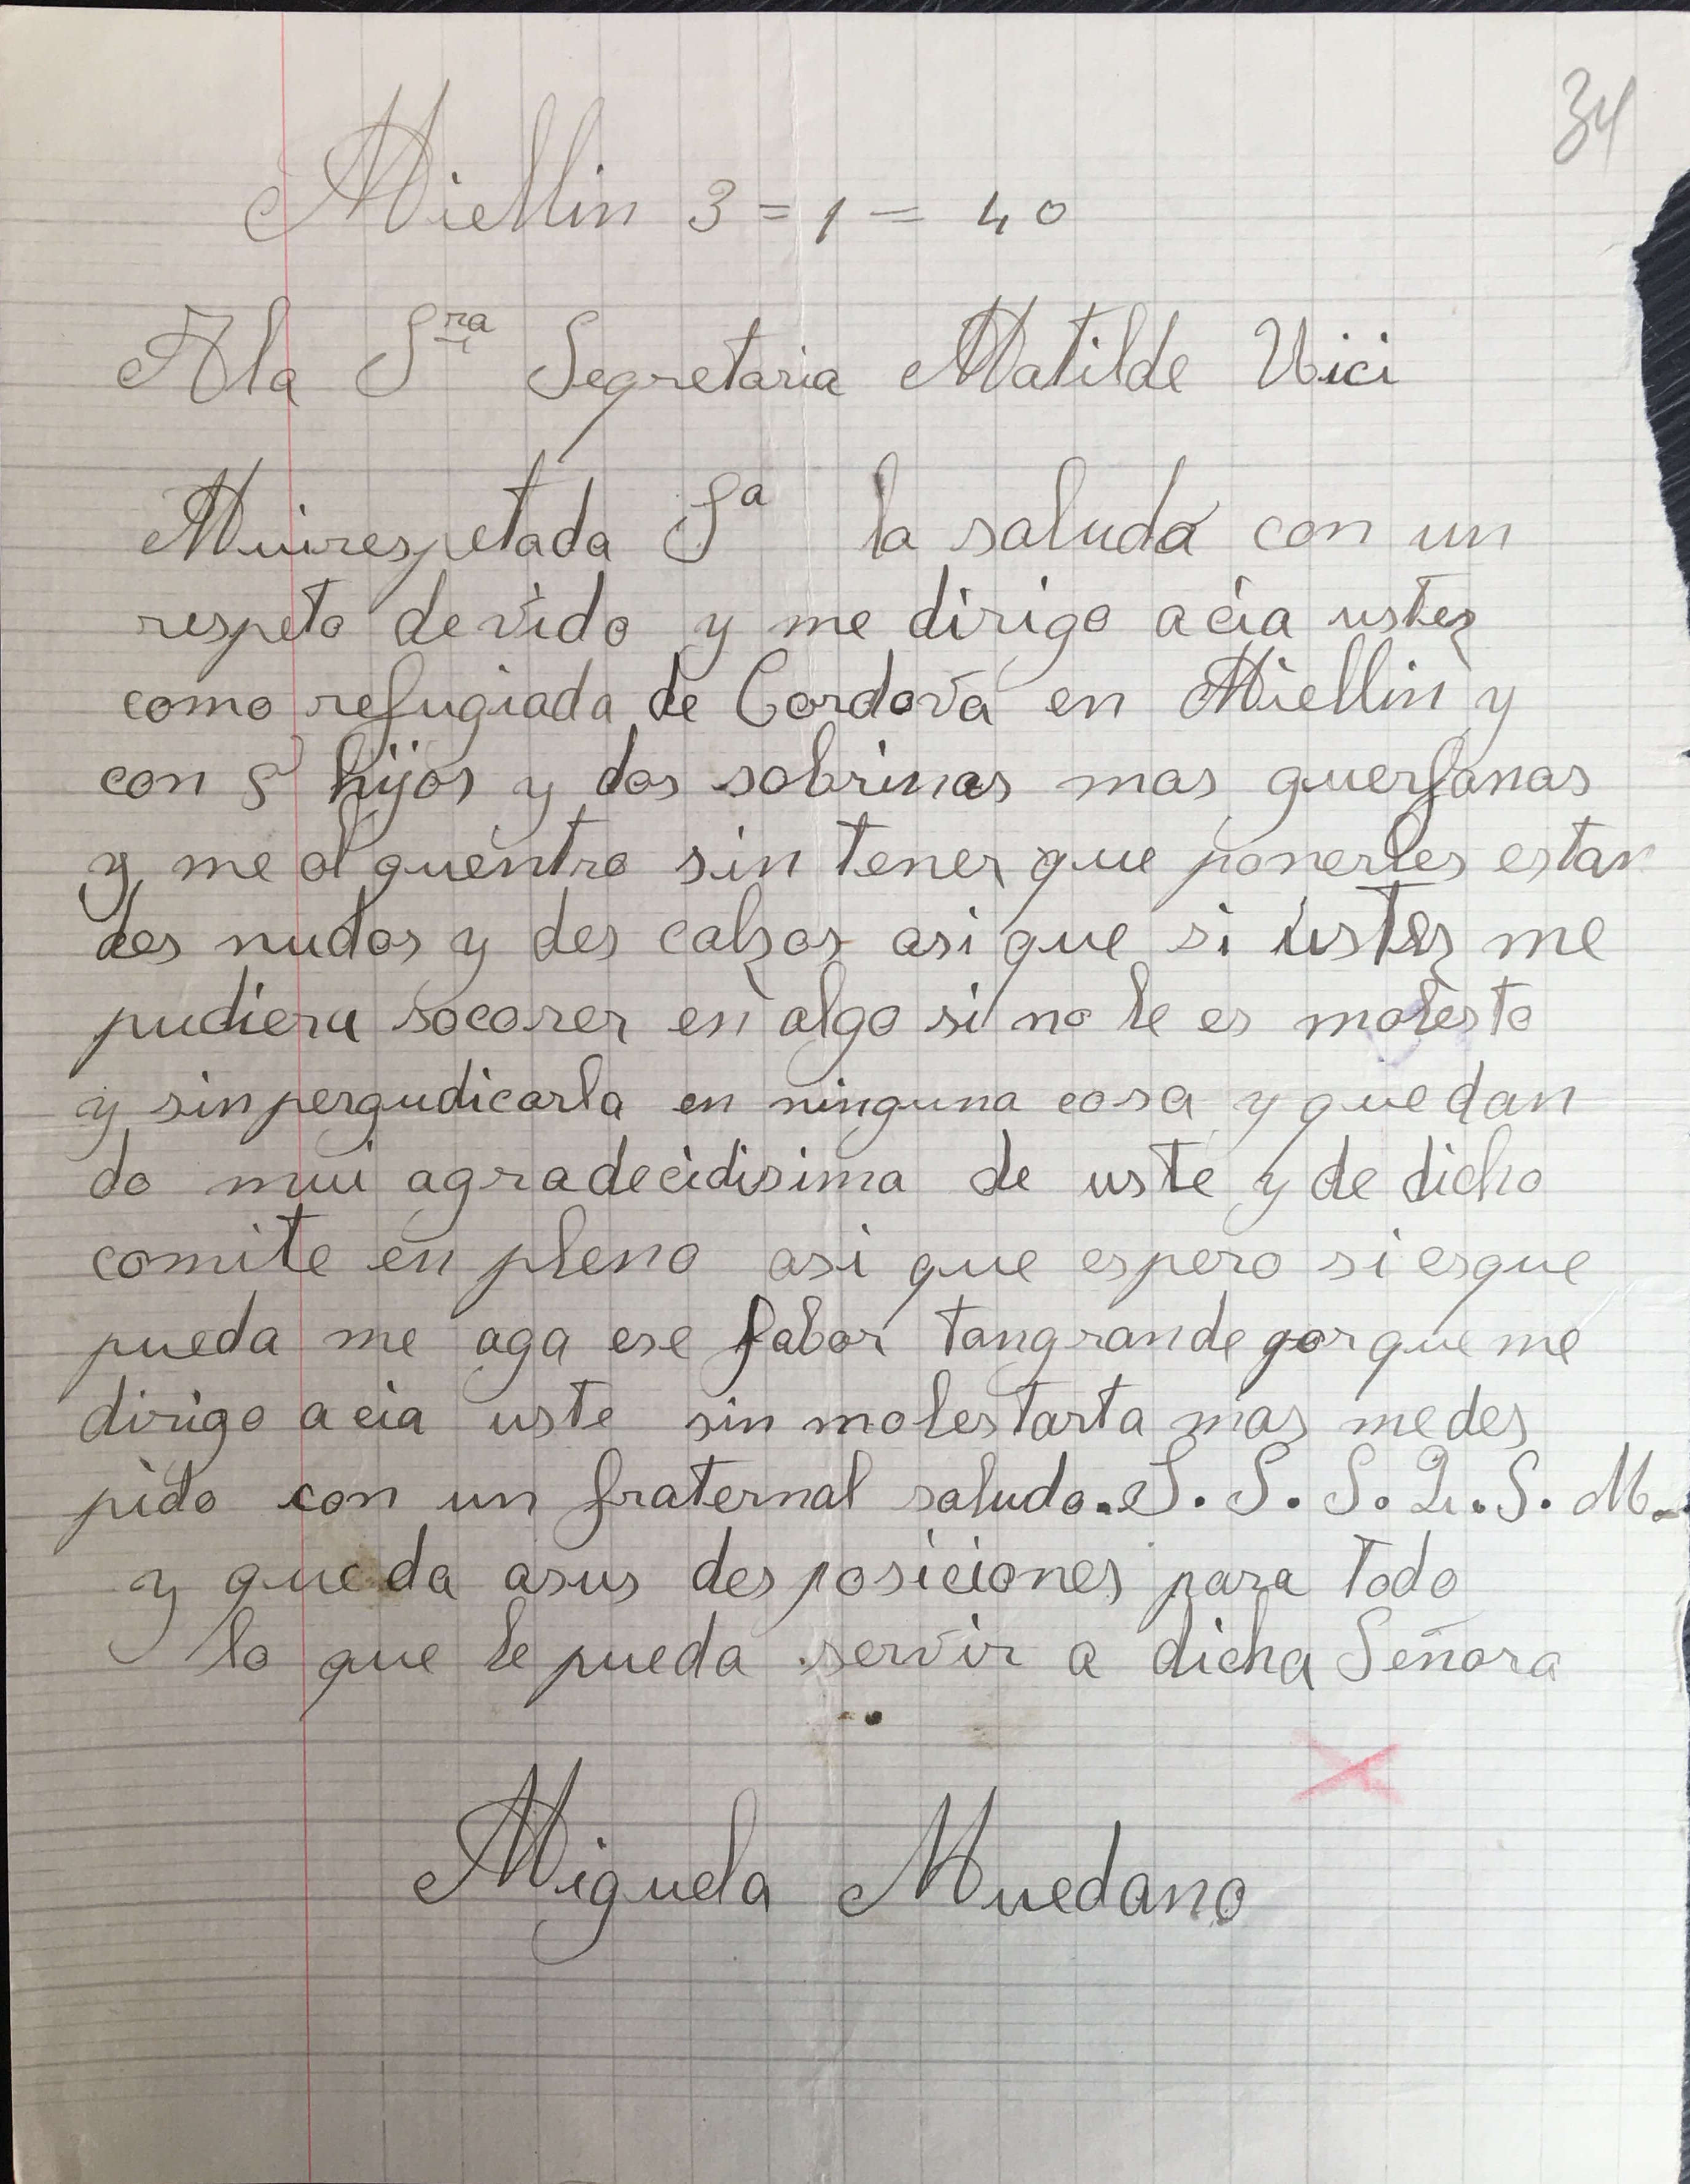 34
Miellin 3=1=40
A la Sra Segretaria Matilde Uici
Muirespetada Sa la saluda con un
respeto devido y me dirigo acia ustez
como refugiada de Cordova en Miellin y
con 8 hijos y dos sobrinas mas guerfanas
y me al guentro sin tener que ponerles estan
des nudos y des calzos asi que si ustez me
pudiera socorer en algo si no le es molesto
y sin pergudicarla en ninguna cosa y quedan
do mui agradecidisima de uste y de dicho
comite en pleno asi que espero si esque
pueda me aga ese fabor tangrande por que me
dirigo acia uste sin molestarta mas medes
pido con un fraternal saludo. S. S. S. Q. S. M.
y queda asus desposiciones para todo
lo que le pueda servir a dicha Señora
Miguela Muedano